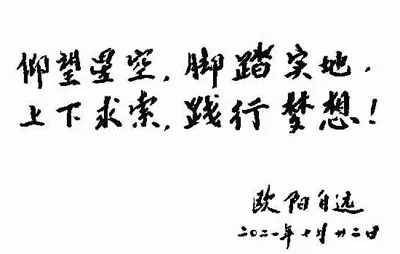 仰望星空,脚踏实地,
上下求索,践行梦想!
欧阳自远
二〇二一年十月廿二日